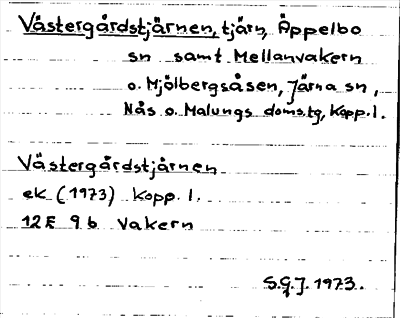 Västergårdstjärnen, tjärn, Äppelbo
sn samt Mellanvakern
o. Mjölbergsåsen, Järna sn,
Nås o. Malungs doms.tg, Kopp. l.
Västergårdstjärnen
ek (1973) Kopp. l.
12E 9b Vakern
S.G.J. 1973.